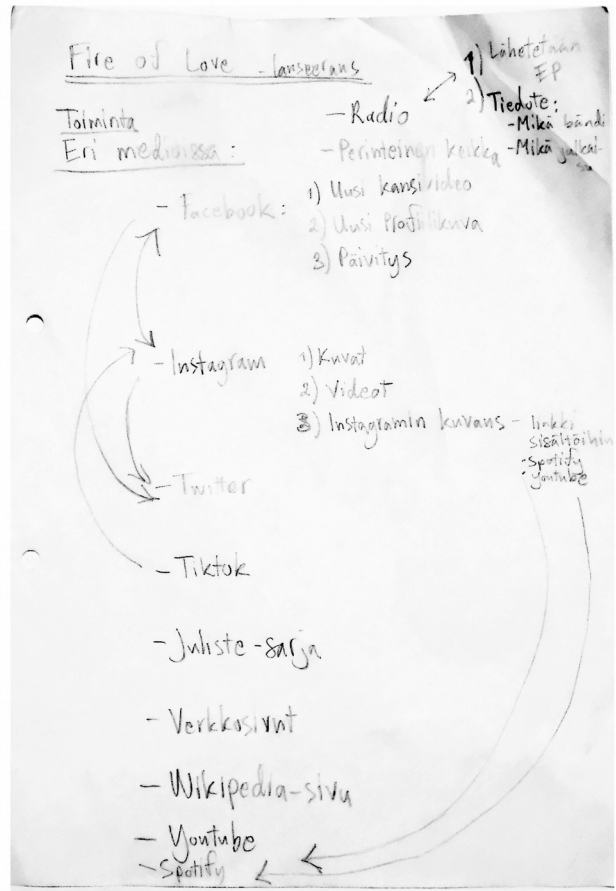 Fire of Love - lanseeraus
Toiminta
Eri medioissa:
- Radio
1) Lähetetään
EP
2) Tiedote:
- Mikä bändi
- Mikä julkai-
su
- Perinteinen keikka
- Facebook:
1) Uusi kansivideo
2) Uusi Profiilikuva
3) Päivitys
- Instagram
1) Kuvat
2) Videot
3) Instagramin kuvaus - linkki
sisältöihin
- Spotify
- Youtube
- Twitter
- Tiktok
- Juliste-sarja
- Verkkosivut
- Wikipedia-sivu
- Youtube
- Spotify